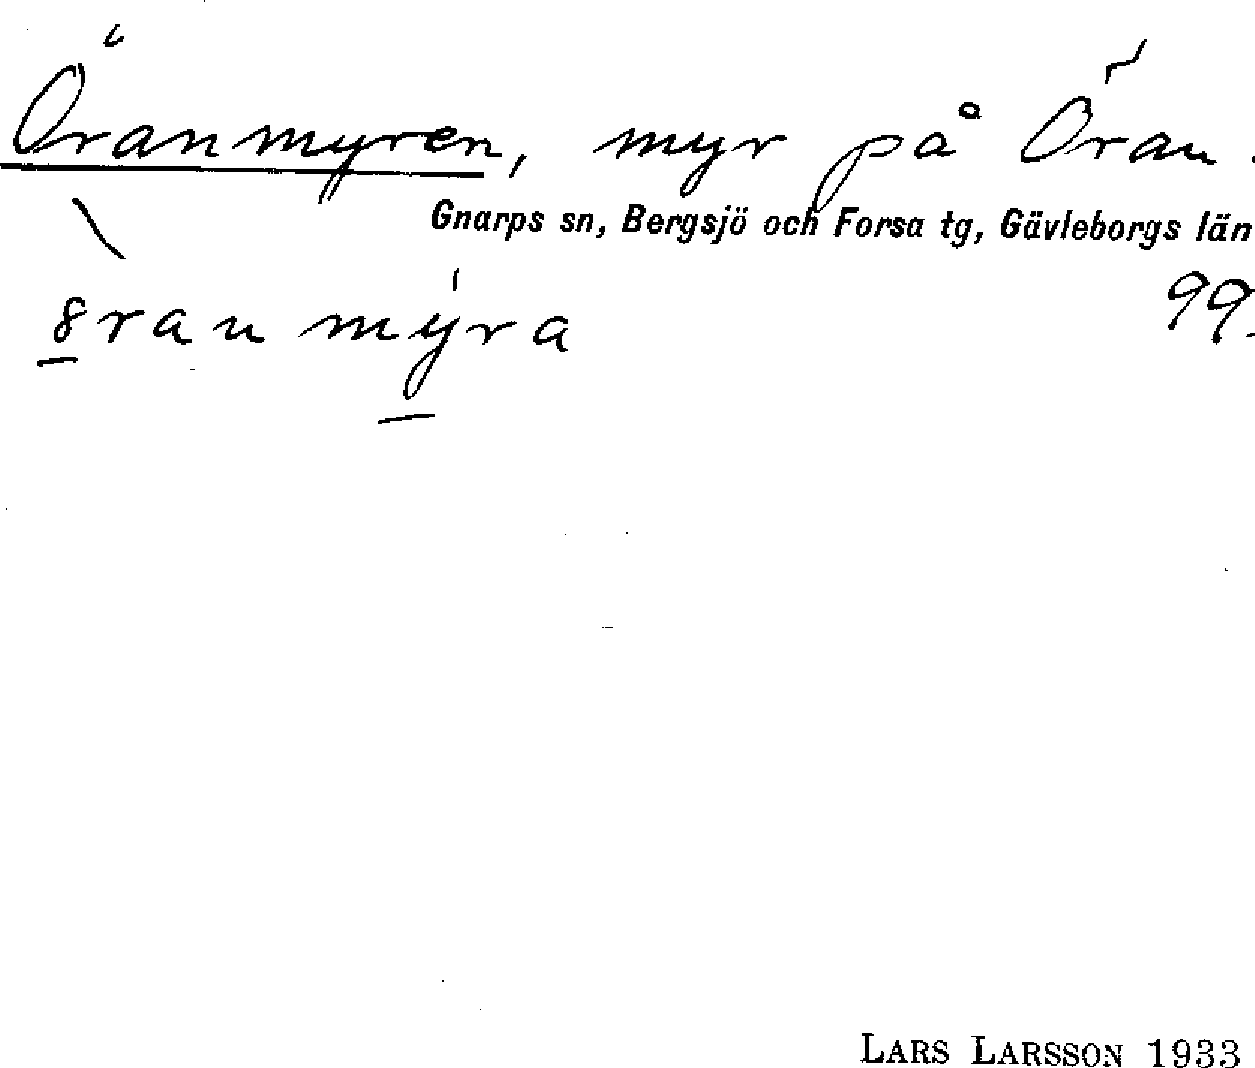 Öranmyren, myr på Öran.
Gnarps sn, Bergsjö och Forsa tg, Gävleborgs län
99.
LARS LARSSON 1933